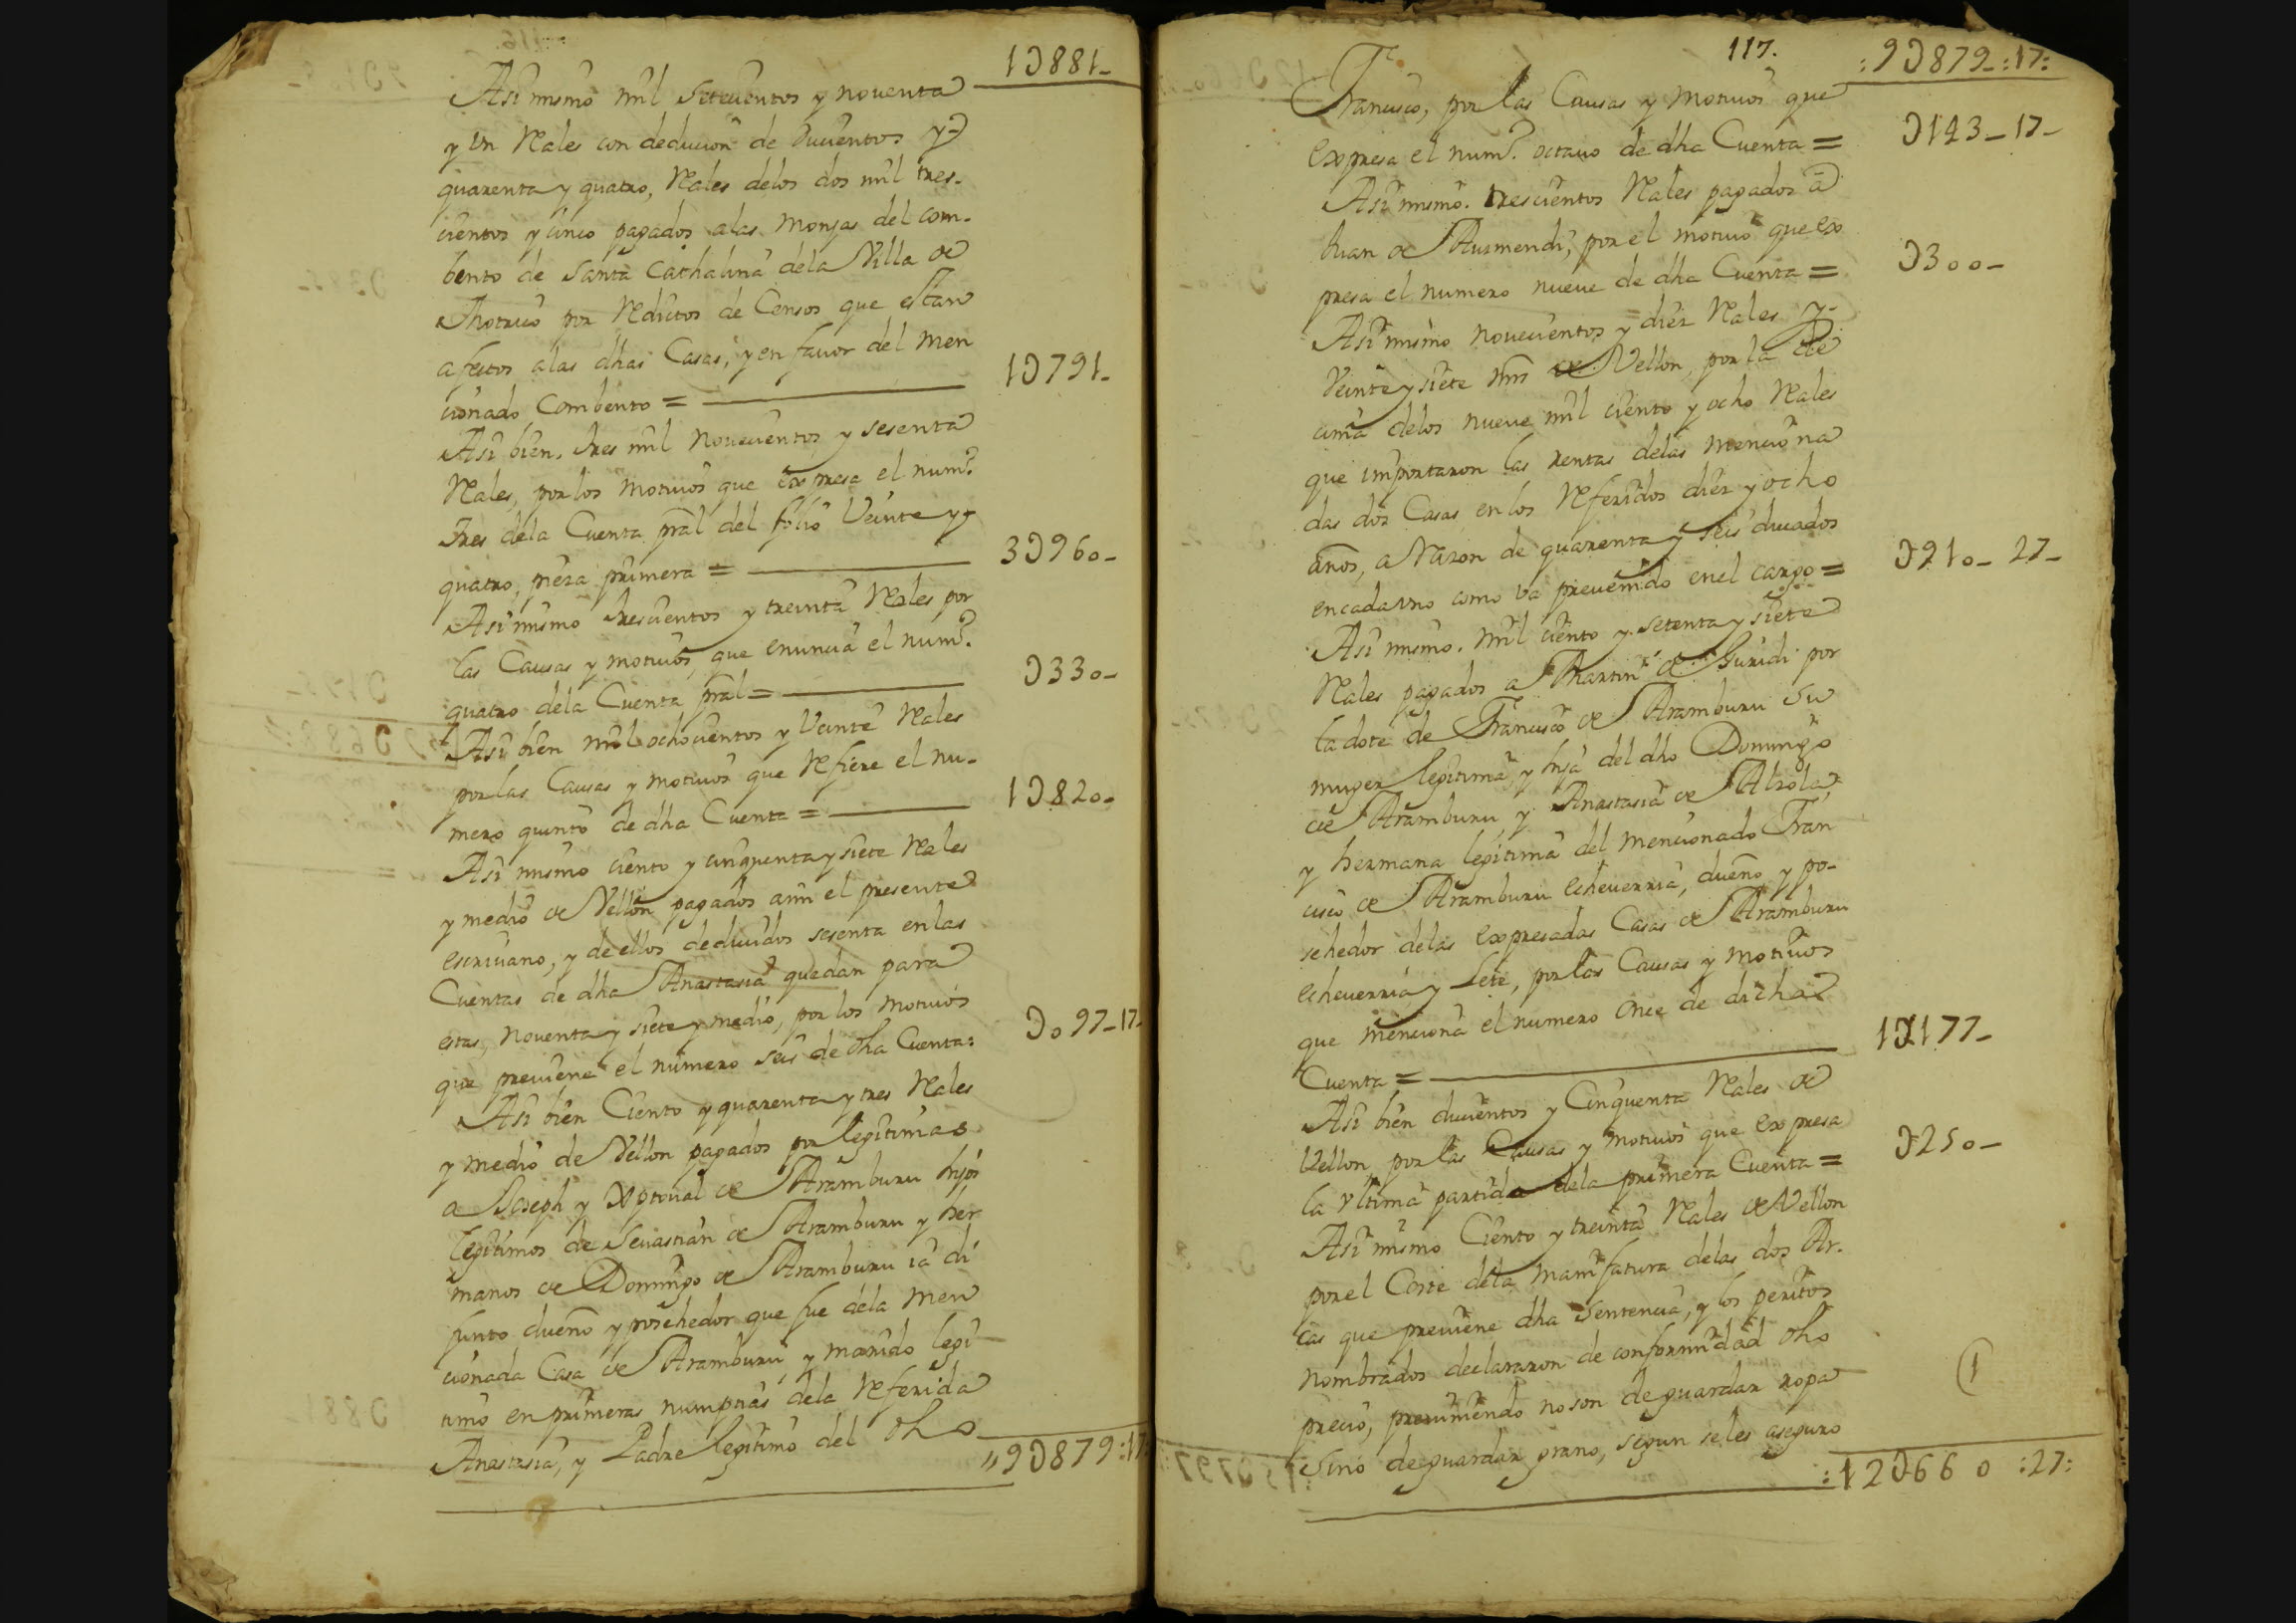 1Ɔ881_
Asi mismo mil setecientos y noventa
y un Rales con deducion de ducientos y
quarenta y quatro, Rales delos dos mil tres-
cientos y cinco pagados alas Monjas del com-
bento de Santa Cathalina dela Villa de
Motrico por Reditos de Censos que estan
afectos alas dhas Casas, y en favor del men
cionado Combento = 1Ɔ791_
Asi bien, tres mil novecientos y sesenta
Rales, por los Motivos que expresa el num.º
tres dela Cuenta pral del folio Veinte y
quatro, pieza primera = 3Ɔ960_
Asi mismo trescientos y treinta Rales por
las Causas y motivos, que enuncia el num.º
quatro dela Cuenta pral = Ɔ330_
Asi bien mil ochocientos y Veinte Rales
por las Causas y motivos que Refiere el nu-
mero quinto de dha Cuenta = 1Ɔ820_
Asi mismo ciento y cinquenta y siete Rales
y medio de Vellon pagados a mi el presente
escrivano, y de ellos deducidos sesenta en las
Cuentas de dha Anastasia quedan para
estas, noventa y siete y medio, por los motivos
que previene el numero seis de dha Cuenta: Ɔ097_17_
Asi bien Ciento y quarenta y tres Rales
y medio de Vellon pagados por legitimas
a Joseph y Xptoval de Aramburu hijos
legitimos de Sevastian de Aramburu y her
manos de Domingo de Aramburu ia di
funto dueño y posehedor que fue dela men
cionada Casa de Aramburu, y marido legi
timo en primeras numpcias dela Referida
Anastasia, y Padre legitimo del dho
9Ɔ879:17
117.
:9Ɔ879_:17:
Francisco, por las Causas y Motivos que
expresa el num.º octavo de dha Cuenta = Ɔ143_17_
Asi mismo. trescientos Rales pagados a
Juan de Ausmendi, por el motivo que ex
presa el numero nueve de dha Cuenta = Ɔ300_
Asi mismo novecientos y diez Rales y
Veinte y siete mrs de Vellon, por la de
cima delos nueve mil ciento y ocho Rales
que importaron las rentas delas menciona
das dos Casas en los Referidos diez y ocho
años, a Razon de quarenta y seis ducados
en cada uno como va prevenido en el cargo = Ɔ910_27_
Asi mismo. mil ciento y setenta y siete
Rales pagados a Martin de Guridi por
la dote de Francisca de Aramburu su
muger legitima, y hija del dho Domingo
de Aramburu, y Anastasia de Alzola,
y hermana legitima del mencionado Fran
cisco de Aramburu Echeverria, dueño y po-
sehedor delas expresadas Casas de Aramburu
Echeverria y Lete, por las Causas y motivos
que menciona el numero Once de dicha
Cuenta = 1Ɔ177_
Asi bien ducientos y Cinquenta Rales de
Vellon por las Causas y motivos que expresa
la Ultima partida dela primera Cuenta = Ɔ250_
Asi mismo Ciento y treinta Rales de Vellon
por el Coste dela manifatura delas dos Ar.
cas que previene dha Sentencia, y los peritos
nombrados declararon de conformidad dho
precio, previniendo no son de guardar ropa
sino de guardar grano, segun seles aseguro
:12Ɔ660:27: